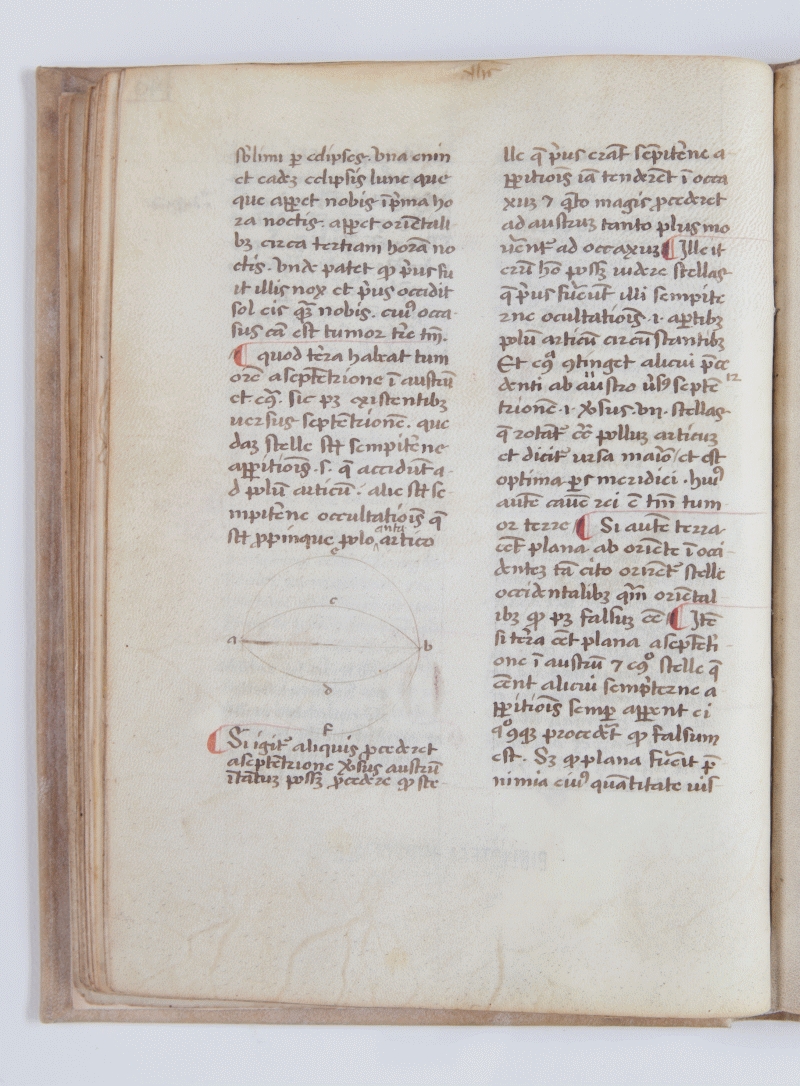 sblimi ꝑ eclipses. vna enin
et eadꝫ eclipsis lune que
que apꝑet nobis ī pͥma ho
ra noctis. apꝑet oriētali
bꝫ circa tertiam horā no
ctis. vnde patet ꝙ pͥus fu
it illis nox et pͥus occidit
sol eis qͣꝫ nobis. cuiꝰ occa
sus cā est tumor tr̄e tm̄.
¶ quod tērra habeat tum
orē a septētrione ī austrū
et eͨͦ. sic pꝫ existentibꝫ
uersus septētrionē. que
daꝫ stelle st̄ sempitēne
apꝑitiōis .s. q̄ accidūt a-
d polū articū: alie st̄ se-
mpitēne occultatiōis q̄
st̄ ꝓpinque polo antartico
e
c
a b
d
f
¶ Si igit᷑ aliquis ꝓcederet
a septētrione v̓sus austrū
ītātuꝫ possꝫ ꝓcedere ꝙ ste-
lle q̄ pͥus erāt sēpitēne a-
pꝑitiōis iā tenderēt ī occa
xuꝫ ⁊ qͣto magis ꝓcederet
ad austruꝫ tanto plus mo
uēnt᷑ ad occaxuꝫ ¶ Ille it
erū hō possꝫ uidere stellas
q̄ pͥus fūēūt illi sempite
rne ocultatiōis .i. aꝑtibꝫ
polū articū circūstantibꝫ
Et eͨͦ ꝯtinget alicui ꝓce
denti ab austro ūsꝰ septē
trionē .i. v̓sus .vii. stellas
q̄ rotāt᷑ cc̄ pollus articuꝫ
et dicit᷑ ursa maiōr et est
optima ꝑs meridici. huiꝰ
autē cauē rei ē tm̄ tum
or terre ¶ Si autē terra
eēt plana ab oriēte ī occi
denteꝫ tā cito orirēt᷑ stelle
occidentalibꝫ qͣm oriētal
ibꝫ ꝙ pꝫ falsuꝫ eē ¶ Itē
si tērra eēt plana a septēt
one ī austrū ⁊ eͨͦ stelle q̄
eēnt alicui sempͥterne a
pꝑitiōis semꝑ apꝑent ei
procedēt ꝙ falsum
est. Sꝫ ꝙ plana fūēit ꝑ
nimia eiuꝰ quātitate uis